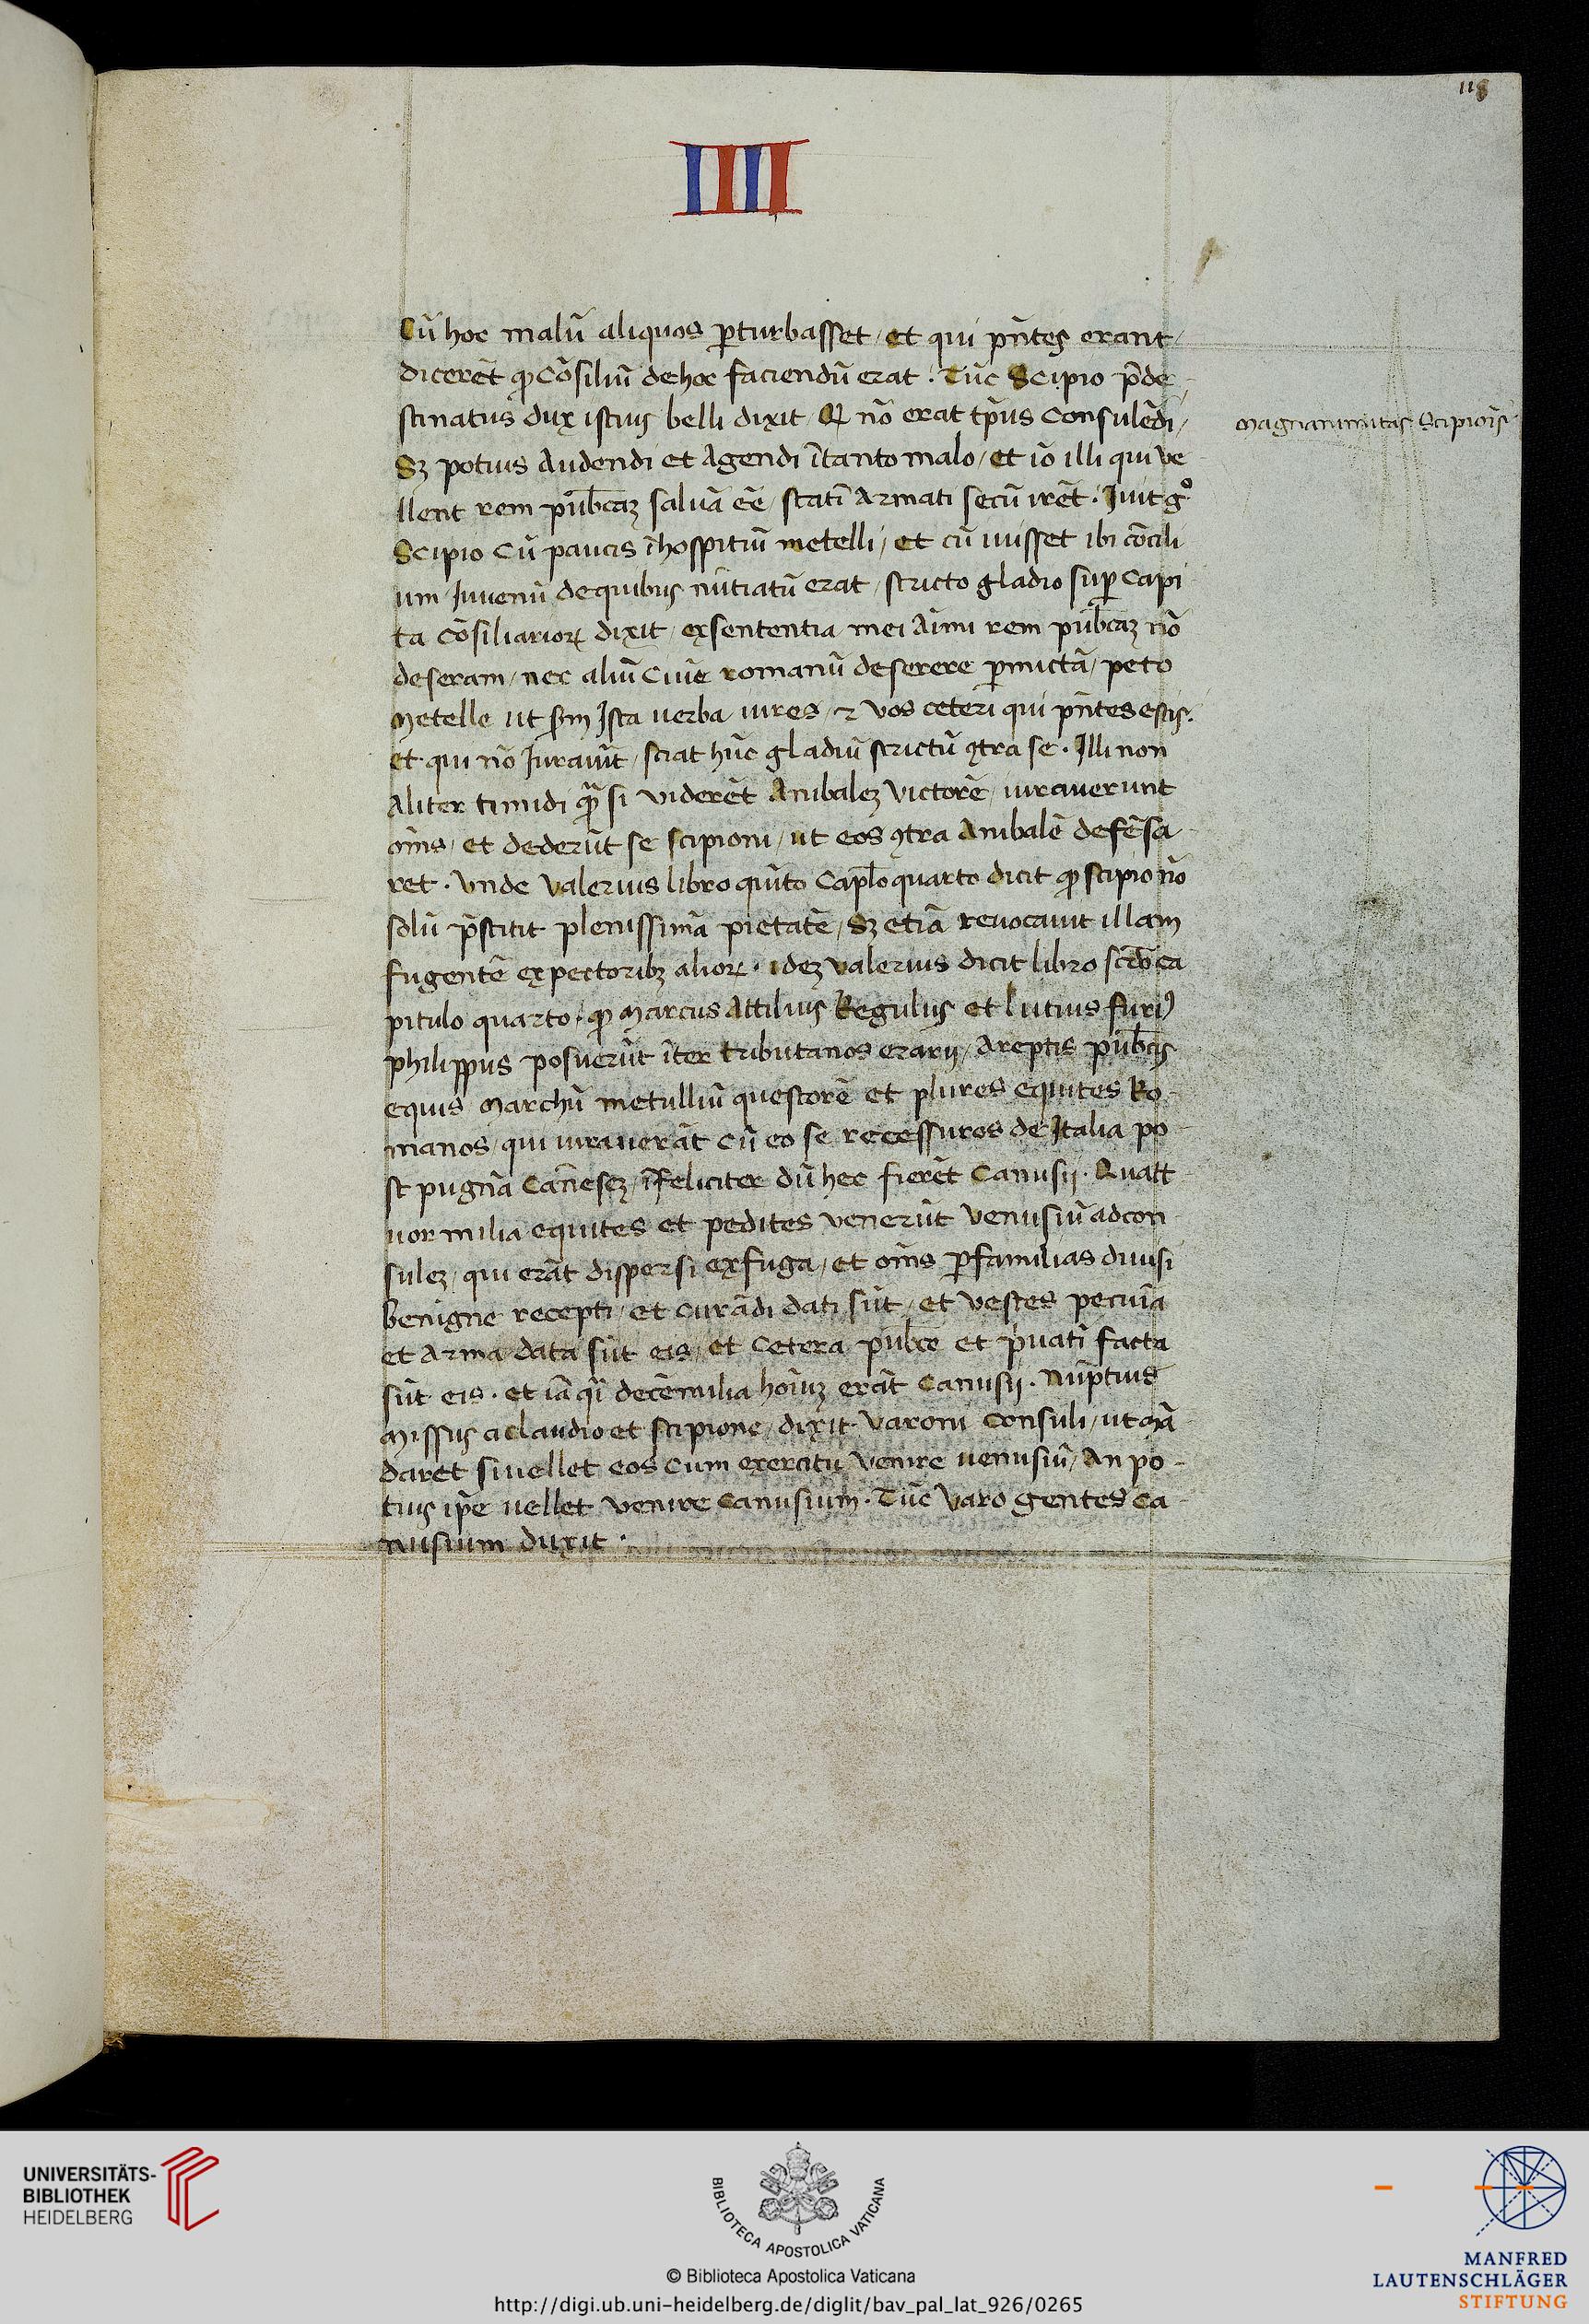 118
IIII
Cū hoc malū aliquos ꝑturbasset / et qui pñtes erant /
dicerēt ꝙ Cōsiliū de hoc faciendū erat . Tūc Scipio p̄de
stinatus dux istius belli dixit / Q nō erat tp̄us Consulēdi /
magnanimitas Scipiōis
Sꝫ potius Audendi et Agendi ītanto malo / et iō illi qui ve
llent rem pub̄caꝫ saluā eē / statī Armati secū irēt . Iuit gͦ
Scipio Cū paucis ī hospitiū metelli / et cū iuisset ibi cōcili
um Iuuenū de quibus nūtiatū erat / stricto gladio suꝑ Capi
ta Cōsiliarioꝝ dixit / ex sententia mei Aīmi rem pub̄caꝫ nō
deseram / nec aliū Ciuē romanū deserere ꝑmictā / peto
Metelle ut sm̄ Ista uerba iures / ⁊ vos ceteri qui pñtes estis .
et qui nō Iurauīt / sciat hūc gladiū strictū ꝯtra se . Illi non
Aliter timidi qᷓ si viderēt Anibaleꝫ victorē / iurauerunt
oīns / et dederūt se scipioni / ut eos ꝯtra Anibalē defēsa
ret . Vnde Valerius libro quīto Capl̄o quarto dicit ꝙ scipio nō
solū p̄stitit plenissimā pietatē / Sꝫ etiā reuocauit illam
fugentē ex pectoribꝫ alioꝝ . ideꝫ Valerius dicit libro scd̄o ca
pitulo quarto / ꝙ Marcus Attilius Regulus et lutius furiꝰ
philippus posuerūt īter tributarios erarij / Areptis pub̄cis
equis Marchū metulliū questorē et plures equites Ro
manos / qui iurauerāt cū eo se recessuros de Italia po
st pugnā Cānēseꝫ / īfeliciter dū hec fierēt Canusij . Quatt
uor milia equites et pedites venerūt Venusiū ad con
suleꝫ / qui erāt dispersi ex fuga / et oīns ꝑ familias diuisi
benigne recepti / et curādi dati sūt / et vestes pecuīa
et Arma data sūt eis / et Cetera pub̄ce et p̄uatī facta
sūt eis . et iā qī decē milia hoīuꝫ erāt Canusij . Nūptius
Missus a claudio et scipione / dixit Varoni Consuli / ut mā
daret si uellet eos cum exercitu venire uenusiū / An po
tius ip̄e uellet venire Canusium . Tūc Varo gentes Ca
nusium duxit .
UNIVERSITÄTS-
BIBLIOTHEK
HEIDELBERG
BIBLIOTECA APOSTOLICA VATICANA
© Biblioteca Apostolica Vaticana
http://digi.ub.uni-heidelberg.de/diglit/bav_pal_lat_926/0265
MANFRED
LAUTENSCHLÄGER
STIFTUNG